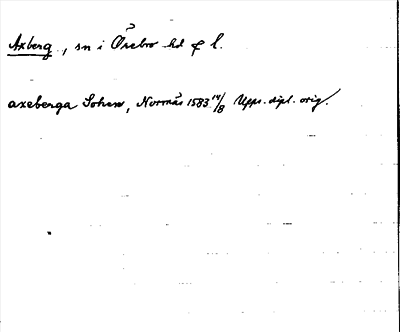 Axberg, sn i Örebro hd o. l.
axeberga Sohen, Norrnäs 1583 14/8 Upps. dipl. orig.